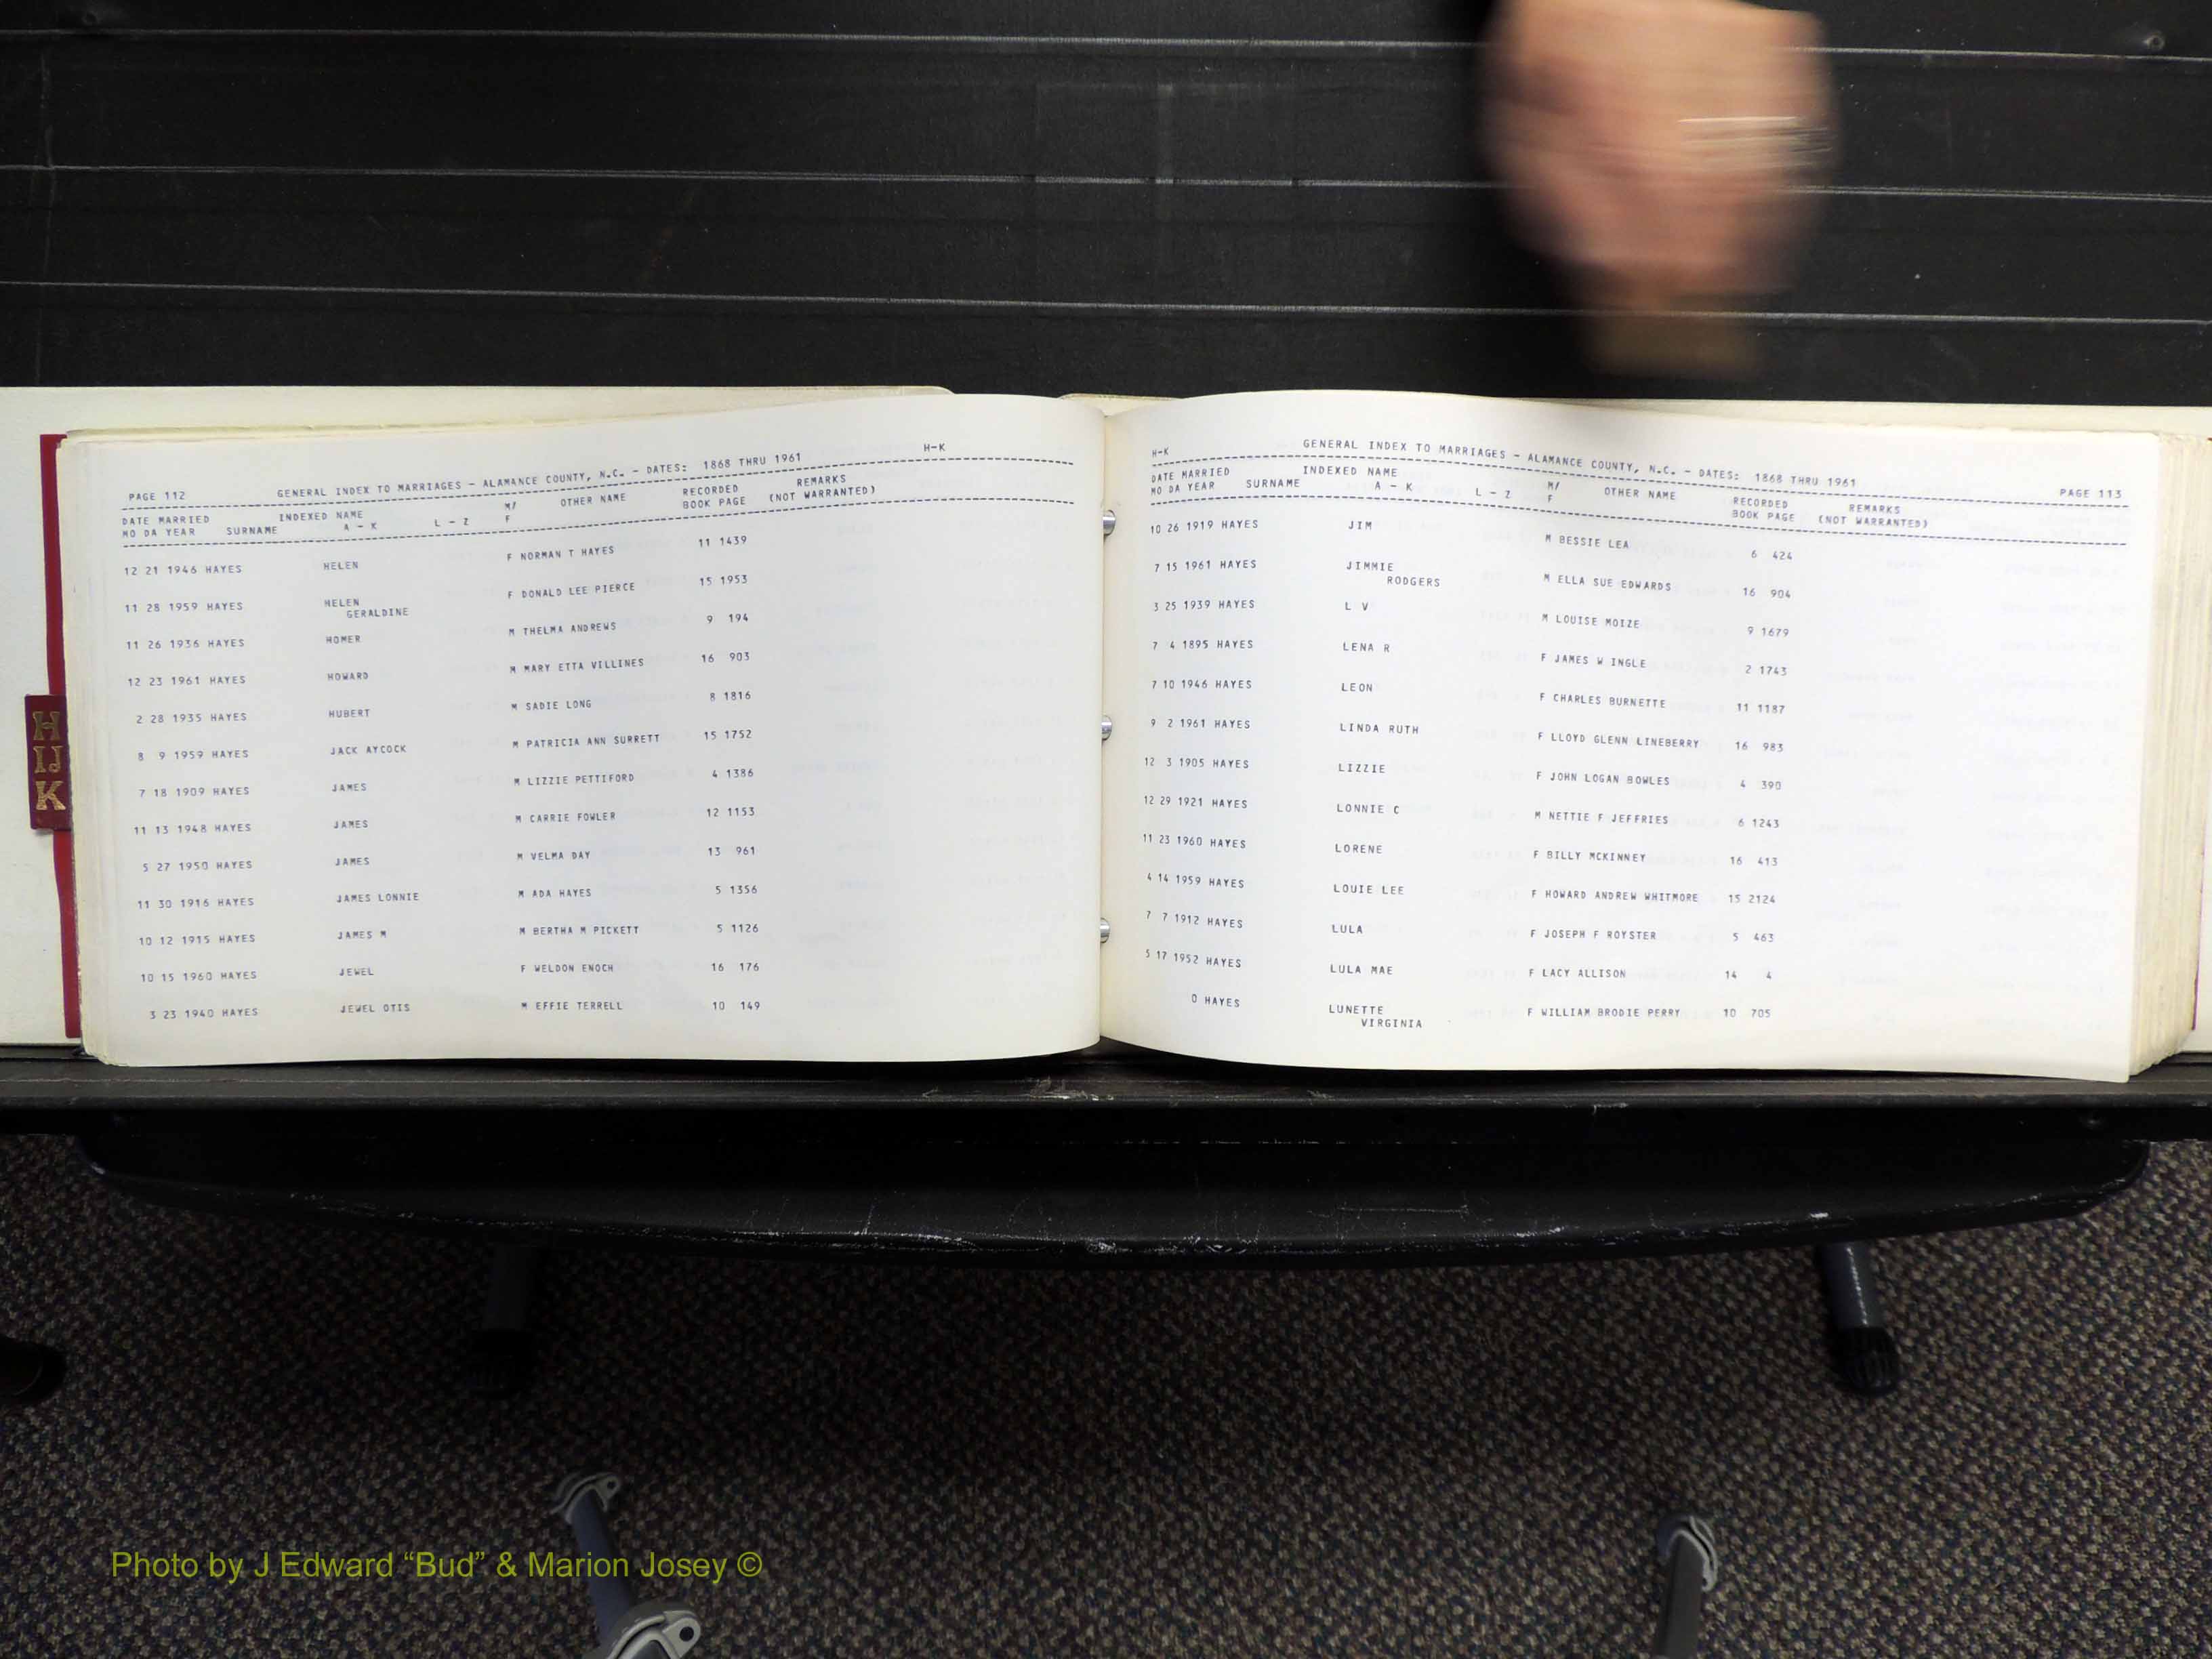 H
IJ
K
PAGE 112 GENERAL INDEX TO MARRIAGES - ALAMANCE COUNTY, N.C. - DATES: 1868 THRU 1961 H-K
DATE MARRIED INDEXED NAME M/ OTHER NAME RECORDED REMARKS
MO DA YEAR SURNAME A - K L - Z F BOOK PAGE (NOT WARRANTED)
12 21 1946 HAYES HELEN F NORMAN T HAYES 11 1439
11 28 1959 HAYES HELEN F DONALD LEE PIERCE 15 1953
GERALDINE
11 26 1936 HAYES HOMER M THELMA ANDREWS 9 194
12 23 1961 HAYES HOWARD M MARY ETTA VILLINES 16 903
2 28 1935 HAYES HUBERT M SADIE LONG 8 1816
8 9 1959 HAYES JACK AYCOCK M PATRICIA ANN SURRETT 15 1752
7 18 1909 HAYES JAMES M LIZZIE PETTIFORD 4 1386
11 13 1948 HAYES JAMES M CARRIE FOWLER 12 1153
5 27 1950 HAYES JAMES M VELMA DAY 13 961
11 30 1916 HAYES JAMES LONNIE M ADA HAYES 5 1356
10 12 1915 HAYES JAMES M M BERTHA M PICKETT 5 1126
10 15 1960 HAYES JEWEL F WELDON ENOCH 16 176
3 23 1940 HAYES JEWEL OTIS M EFFIE TERRELL 10 149
H-K GENERAL INDEX TO MARRIAGES - ALAMANCE COUNTY, N.C. - DATES: 1868 THRU 1961 PAGE 113
DATE MARRIED INDEXED NAME M/ OTHER NAME RECORDED REMARKS
MO DA YEAR SURNAME A - K L - Z F BOOK PAGE (NOT WARRANTED)
10 26 1919 HAYES JIM M BESSIE LEA 6 424
7 15 1961 HAYES JIMMIE M ELLA SUE EDWARDS 16 904
RODGERS
3 25 1939 HAYES L V M LOUISE MOIZE 9 1679
7 4 1895 HAYES LENA R F JAMES W INGLE 2 1743
7 10 1946 HAYES LEON F CHARLES BURNETTE 11 1187
9 2 1961 HAYES LINDA RUTH F LLOYD GLENN LINEBERRY 16 983
12 3 1905 HAYES LIZZIE F JOHN LOGAN BOWLES 4 390
12 29 1921 HAYES LONNIE C M NETTIE F JEFFRIES 6 1243
11 23 1960 HAYES LORENE F BILLY MCKINNEY 16 413
4 14 1959 HAYES LOUIE LEE F HOWARD ANDREW WHITMORE 15 2124
7 7 1912 HAYES LULA F JOSEPH F ROYSTER 5 463
5 17 1952 HAYES LULA MAE F LACY ALLISON 14 4
0 HAYES LUNETTE F WILLIAM BRODIE PERRY 10 705
VIRGINIA
Photo by J Edward “Bud” & Marion Josey ©